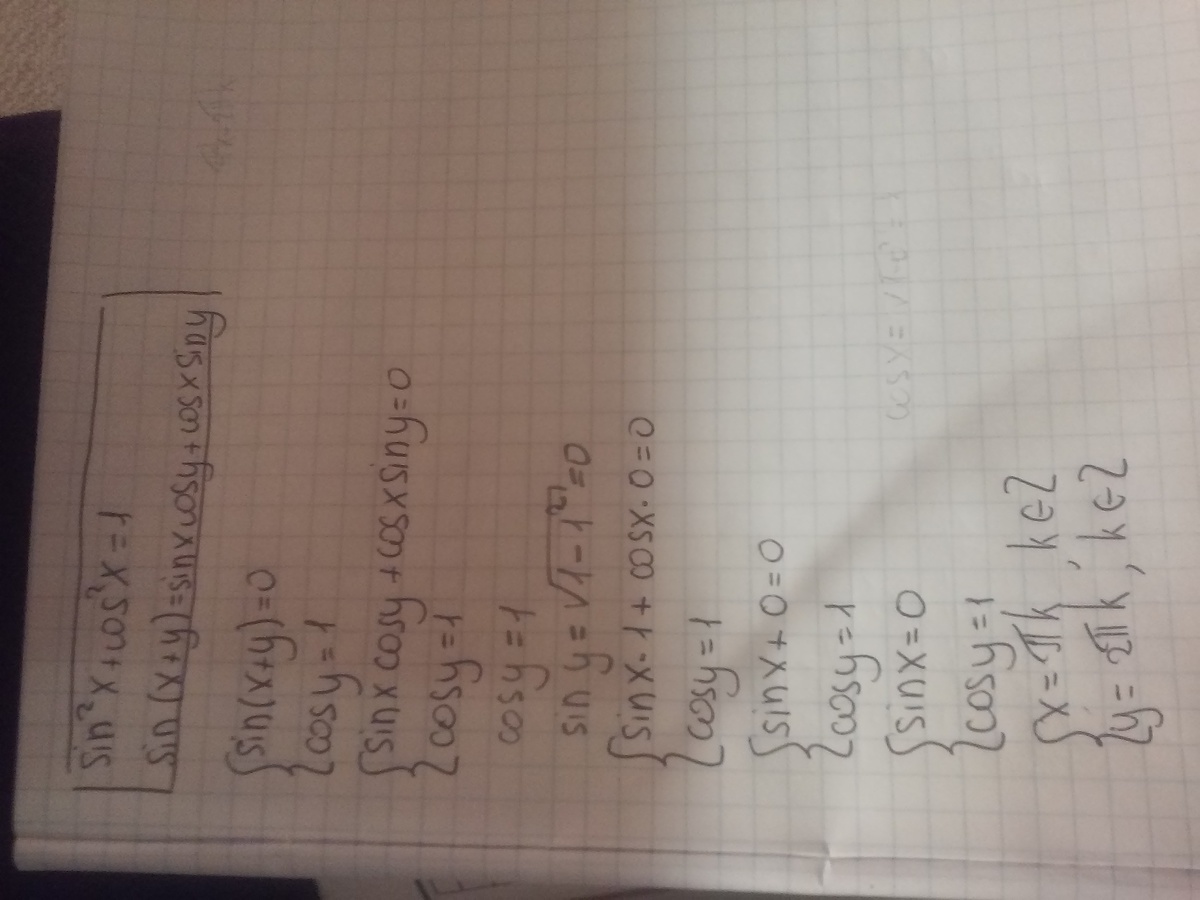 sin²x+cos²x=1
sin(x+y)=sinxcosy+cosxsiny
{sin(x+y)=0
{cosy=1
{sinxcosy+cosxsiny=0
{cosy=1
cosy=1
siny=√1-1²=0
{sinx·1+cosx·0=0
{cosy=1
{sinx+0=0
{cosy=1
{sinx=0
{cosy=1
{x=πk, k∈Z
{y=2πk, k∈Z